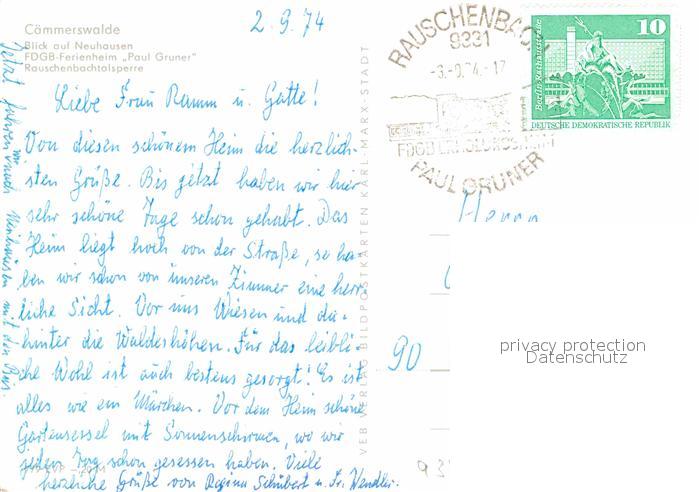 Cämmerswalde
Blick auf Neuhausen
FDGB-Ferienheim „Paul Gruner"
Rauschenbachtalsperre
2.9.74
Liebe Frau Ramm u. Gatte!
Von diesen schönem Heim die herzlich-
sten Grüße. Bis jetzt haben wir hier
sehr schöne Tage schon gehabt. Das
Heim liegt hoch von der Straße, so ha-
ben wir schon von unseren Zimmer eine herr-
liche Sicht. Vor uns Wiesen und da-
hinter die Waldeshöhen. Für das leibli-
che Wohl ist auch bestens gesorgt! Es ist
alles wie ein Märchen. Vor dem Heim schöne
Gartensessel mit Sonnenschirmen, wo wir
jeden Tag schon gesessen haben. Viele
herzliche Grüße von Regina Schubert u. Fr. Wendler.
Jetzt fahren wir nach Neuhausen mit den Bus.
VEB VERLAG BILDPOSTKARTEN KARL-MARX-STADT
RAUSCHENBACH
9331
-3.-9.74.-17
FDGB ERHOLUNGSHEIM
PAUL GRUNER
10
Berlin, Rathausstraße
DEUTSCHE DEMOKRATISCHE REPUBLIK
90
93
privacy protection
Datenschutz